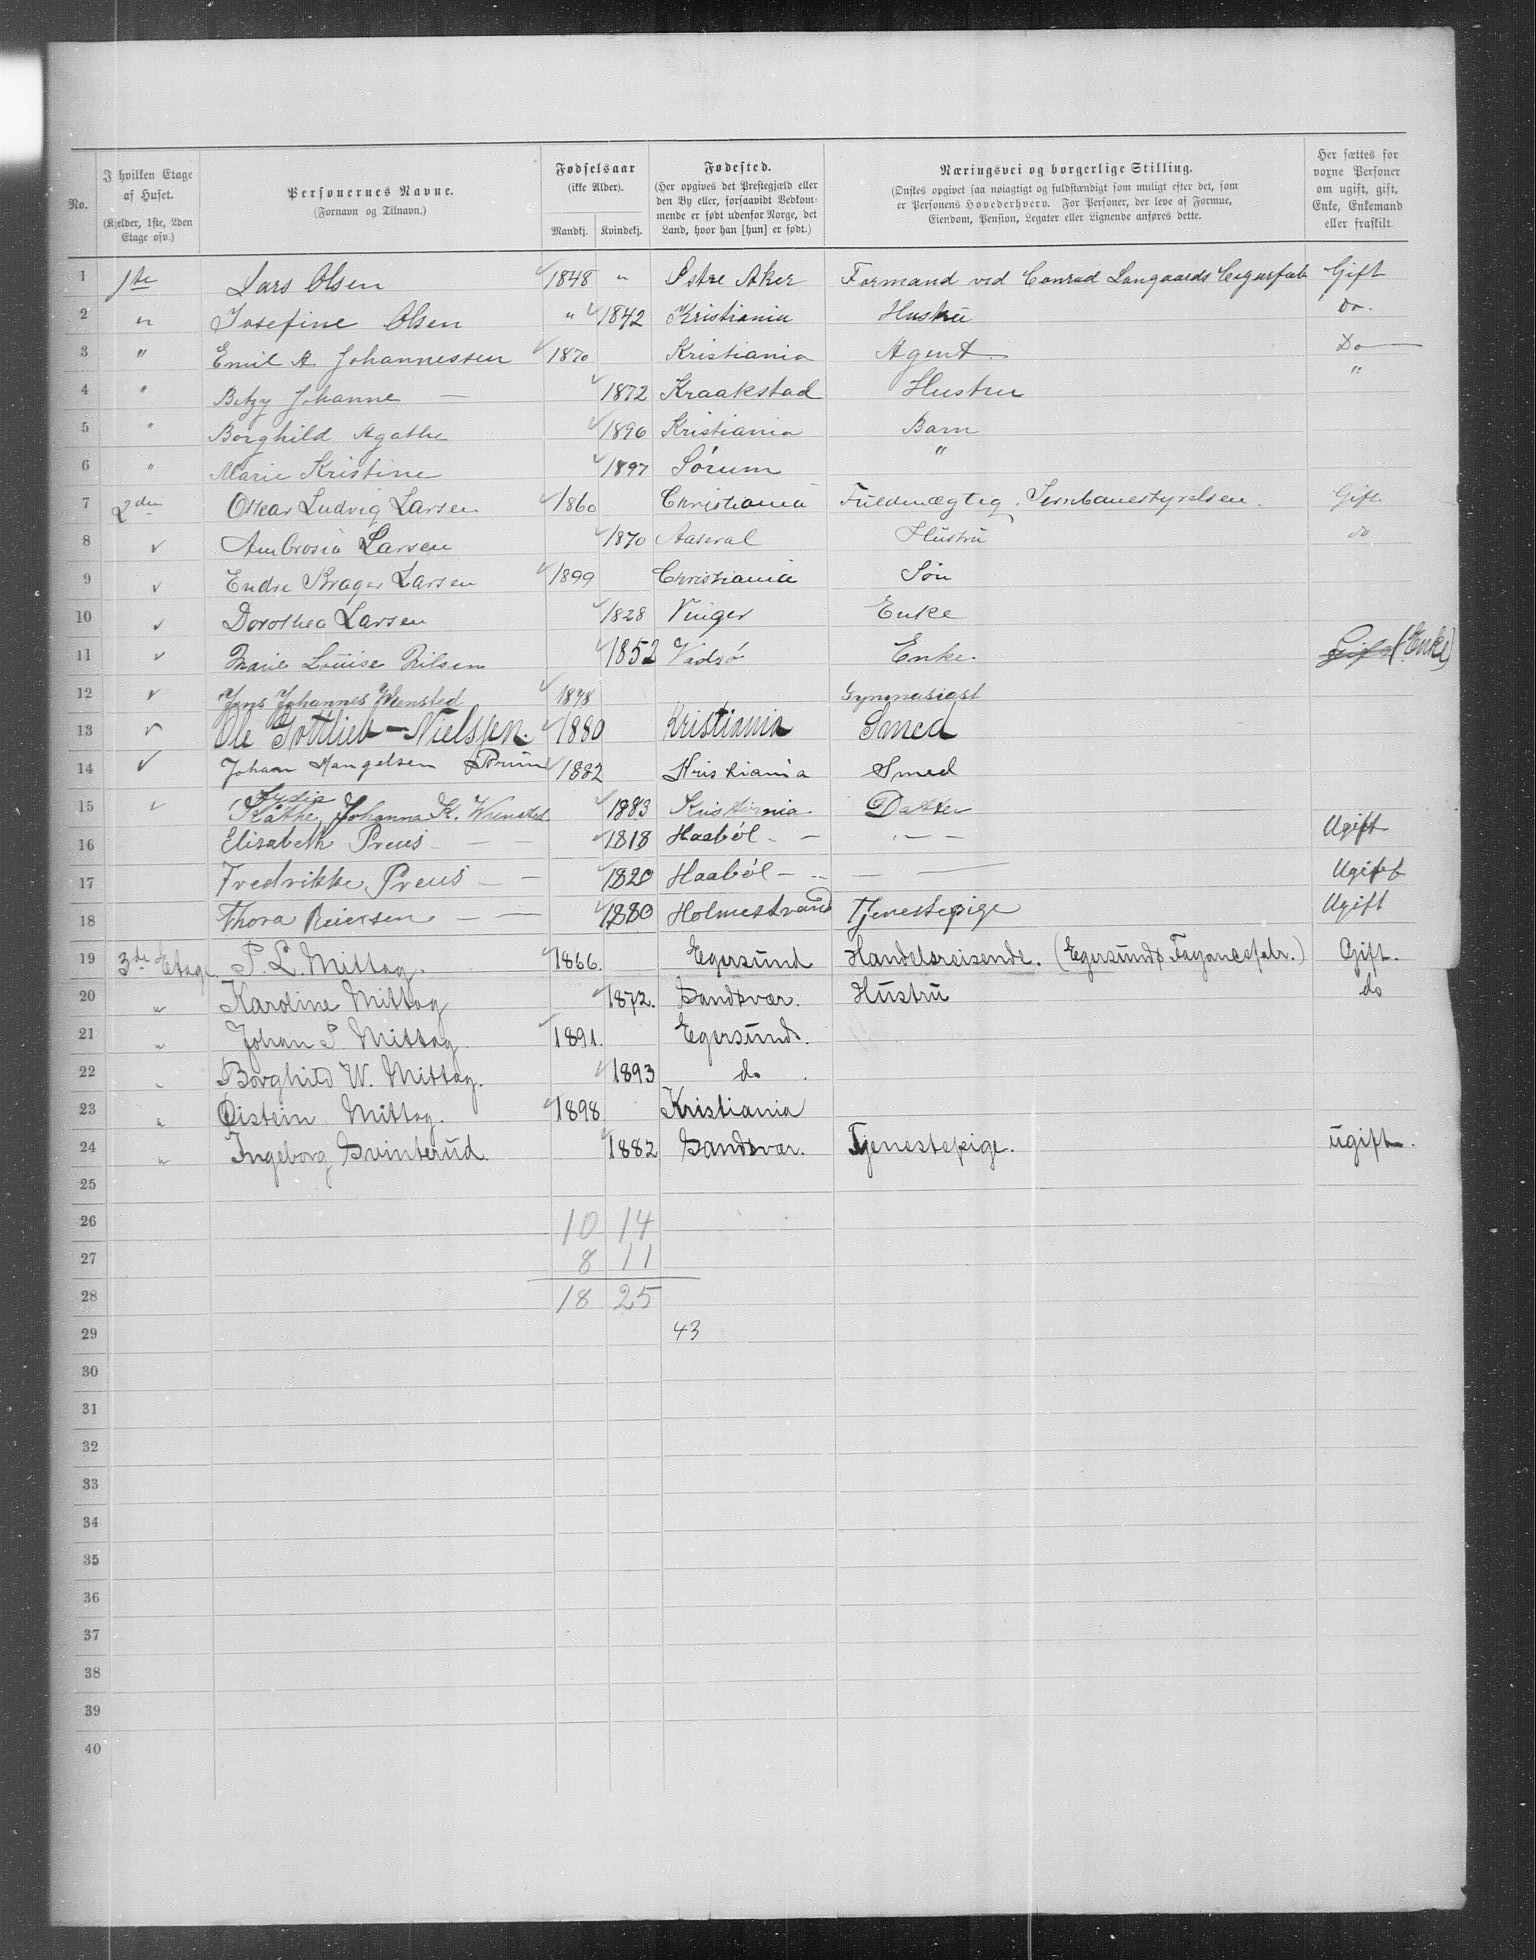 No.
I hvilken Etage af Huset.
(Kjelder, 1ste, 2den Etage osv.)
Personernes Navne.
(Fornavn og Tilnavn.)
Fødselsaar
(ikke Alder).
Mandkj. Kvindekj.
Fødested.
(Her opgives det Prestegjæld eller
den By eller, forsaavidt Vedkom-
mende er født udenfor Norge, det
Land, hvor han [hun] er født.)
Næringsvei og borgerlige Stilling.
(Ønskes opgivet saa nøiagtigt og fuldstændigt som muligt efter det, som
er Personens Hovederhverv. For Personer, der leve af Formue,
Eiendom, Pension, Legater eller Lignende anføres dette.
Her sættes for
voxne Personer
om ugift, gift,
Enke, Enkemand
eller fraskilt.
1 1ste Lars Olsen 1848 " Østre Aker Formand ved Conrad Langaards Cigarfab Gift
2 " Josefine Olsen " 1842 Kristiania Hustru Do.
3 " Emil A Johannessen 1870 Kristiania Agent Do
4 " Betzy Johanne — 1872 Kraakstad Hustru "
5 " Borghild Agathe 1896 Kristiania Barn
6 " Marie Kristine 1897 Sørum "
7 2den Oskar Ludvig Larsen 1860 Christiania Fuldmægtig. Jernbanestyrelsen. Gift
8 Ambrosia Larsen 1870 Aaseral Hustru do
9 Endre Brager Larsen 1899 Christiania Søn
10 Dorothea Larsen 1828 Vinger Enke
11 Marie Louise Nilsen 1852 Vadsø Enke. Gift (Enke)
12 Jens Johannes Wrensted 1878 Gymnasiast
13 Ole Gottlieb - Nielssen. 1880 Kristiania Smed
14 Johan Mangelsen Bruun 1882 Kristiania Smed
15 Käthe Lydia Johanna K. Wrensted 1883 Kristiania Datter
16 Elisabeth Preus — — 1818 Haabøl — " — — Ugift
17 Fredrikke Preus — — 1820 Haabøl — " — — Ugift
18 Thora Reiersen — — 1880 Holmestrand Tjenestepige Ugift
19 3de Etage P. L. Mittag. 1866. Egersund Handelsreisende. (Egersunds Fayancefabr.) Gift.
20 " Karoline Mittag 1872. Sandsvær. Hustru do
21 " Johan S. Mittag 1891. Egersund.
22 " Borghild W. Mittag. 1893 do
23 " Øistein Mittag. 1898 Kristiania
24 " Ingeborg Svinterud. 1882 Sandsvær. Tjenestepige. ugift.
25
26 10 14
27 8 11
28 18 25
29 43
30
31
32
33
34
35
36
37
38
39
40